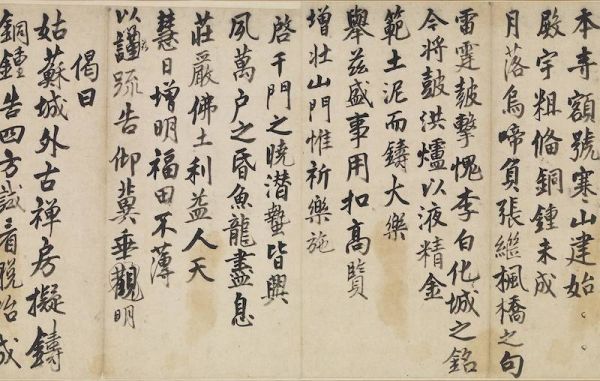 本寺額號寒山建始
殿宇粗備銅鍾未成
月落烏啼負張繼楓橋之句
雷霆鼓擊愧李白化城之銘
今將鼓洪爐以液精金
範土泥而鑄大樂
舉茲盛事用扣高賢
增壯山門惟祈樂施
啓千門之曉潛蟄皆興
夙萬戶之昏魚龍盡息
莊嚴佛土利益人天
慧日增明福田不薄
以謹疏告仰冀垂觀明
偈曰
姑蘇城外古禪房擬鑄
銅鍾告四方試看脫胎成